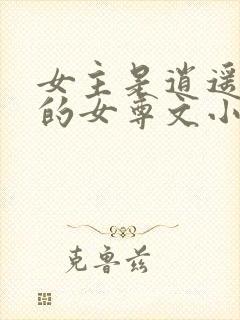 女主是逍遥
的女尊文小
克鲁兹